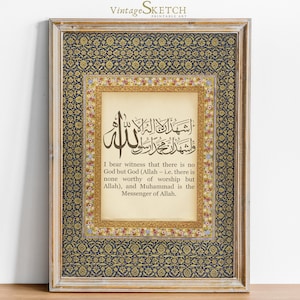 VintageSKETCH
PRINTABLE ART
اشهد ان لا اله الا الله
واشهد ان محمد رسول
I bear witness that there is no
God but God (Allah – i.e. there is
none worthy of worship but
Allah), and Muhammad is the
Messenger of Allah.